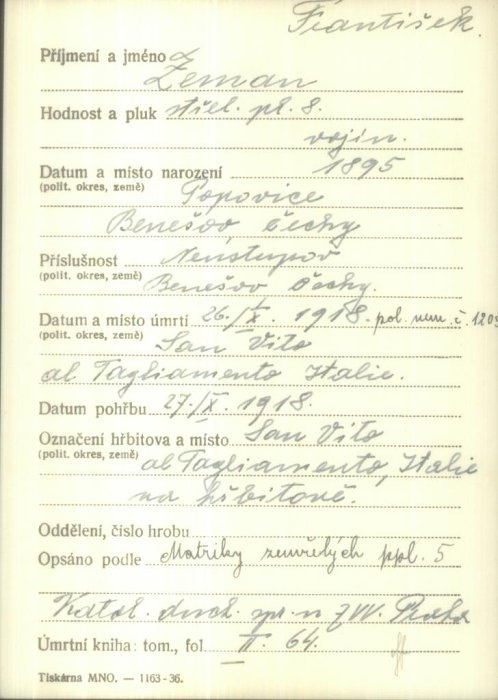 František.
Příjmení a jméno
Zeman
Hodnost a pluk střel. pl. 8.
vojín.
Datum a místo narození 1895
(polit. okres, země) Popovice
Benešov Čechy
Příslušnost Neustupov
(polit. okres, země) Benešov Čechy.
Datum a místo úmrtí 26./IX. 1918. pol. nem. č. 1203
(polit. okres, země) San Vito
al Tagliamento Italie.
Datum pohřbu 27./IX. 1918.
Označení hřbitova a místo San Vito
(polit. okres, země) al Tagliamento, Italie
na hřbitově.
Oddělení, číslo hrobu
Opsáno podle Matriky zemřelých ppl. 5
Katol. duch. spr. n ZVV. Praha
Úmrtní kniha: tom., fol II. 64.
Tiskárna MNO. — 1163-36.